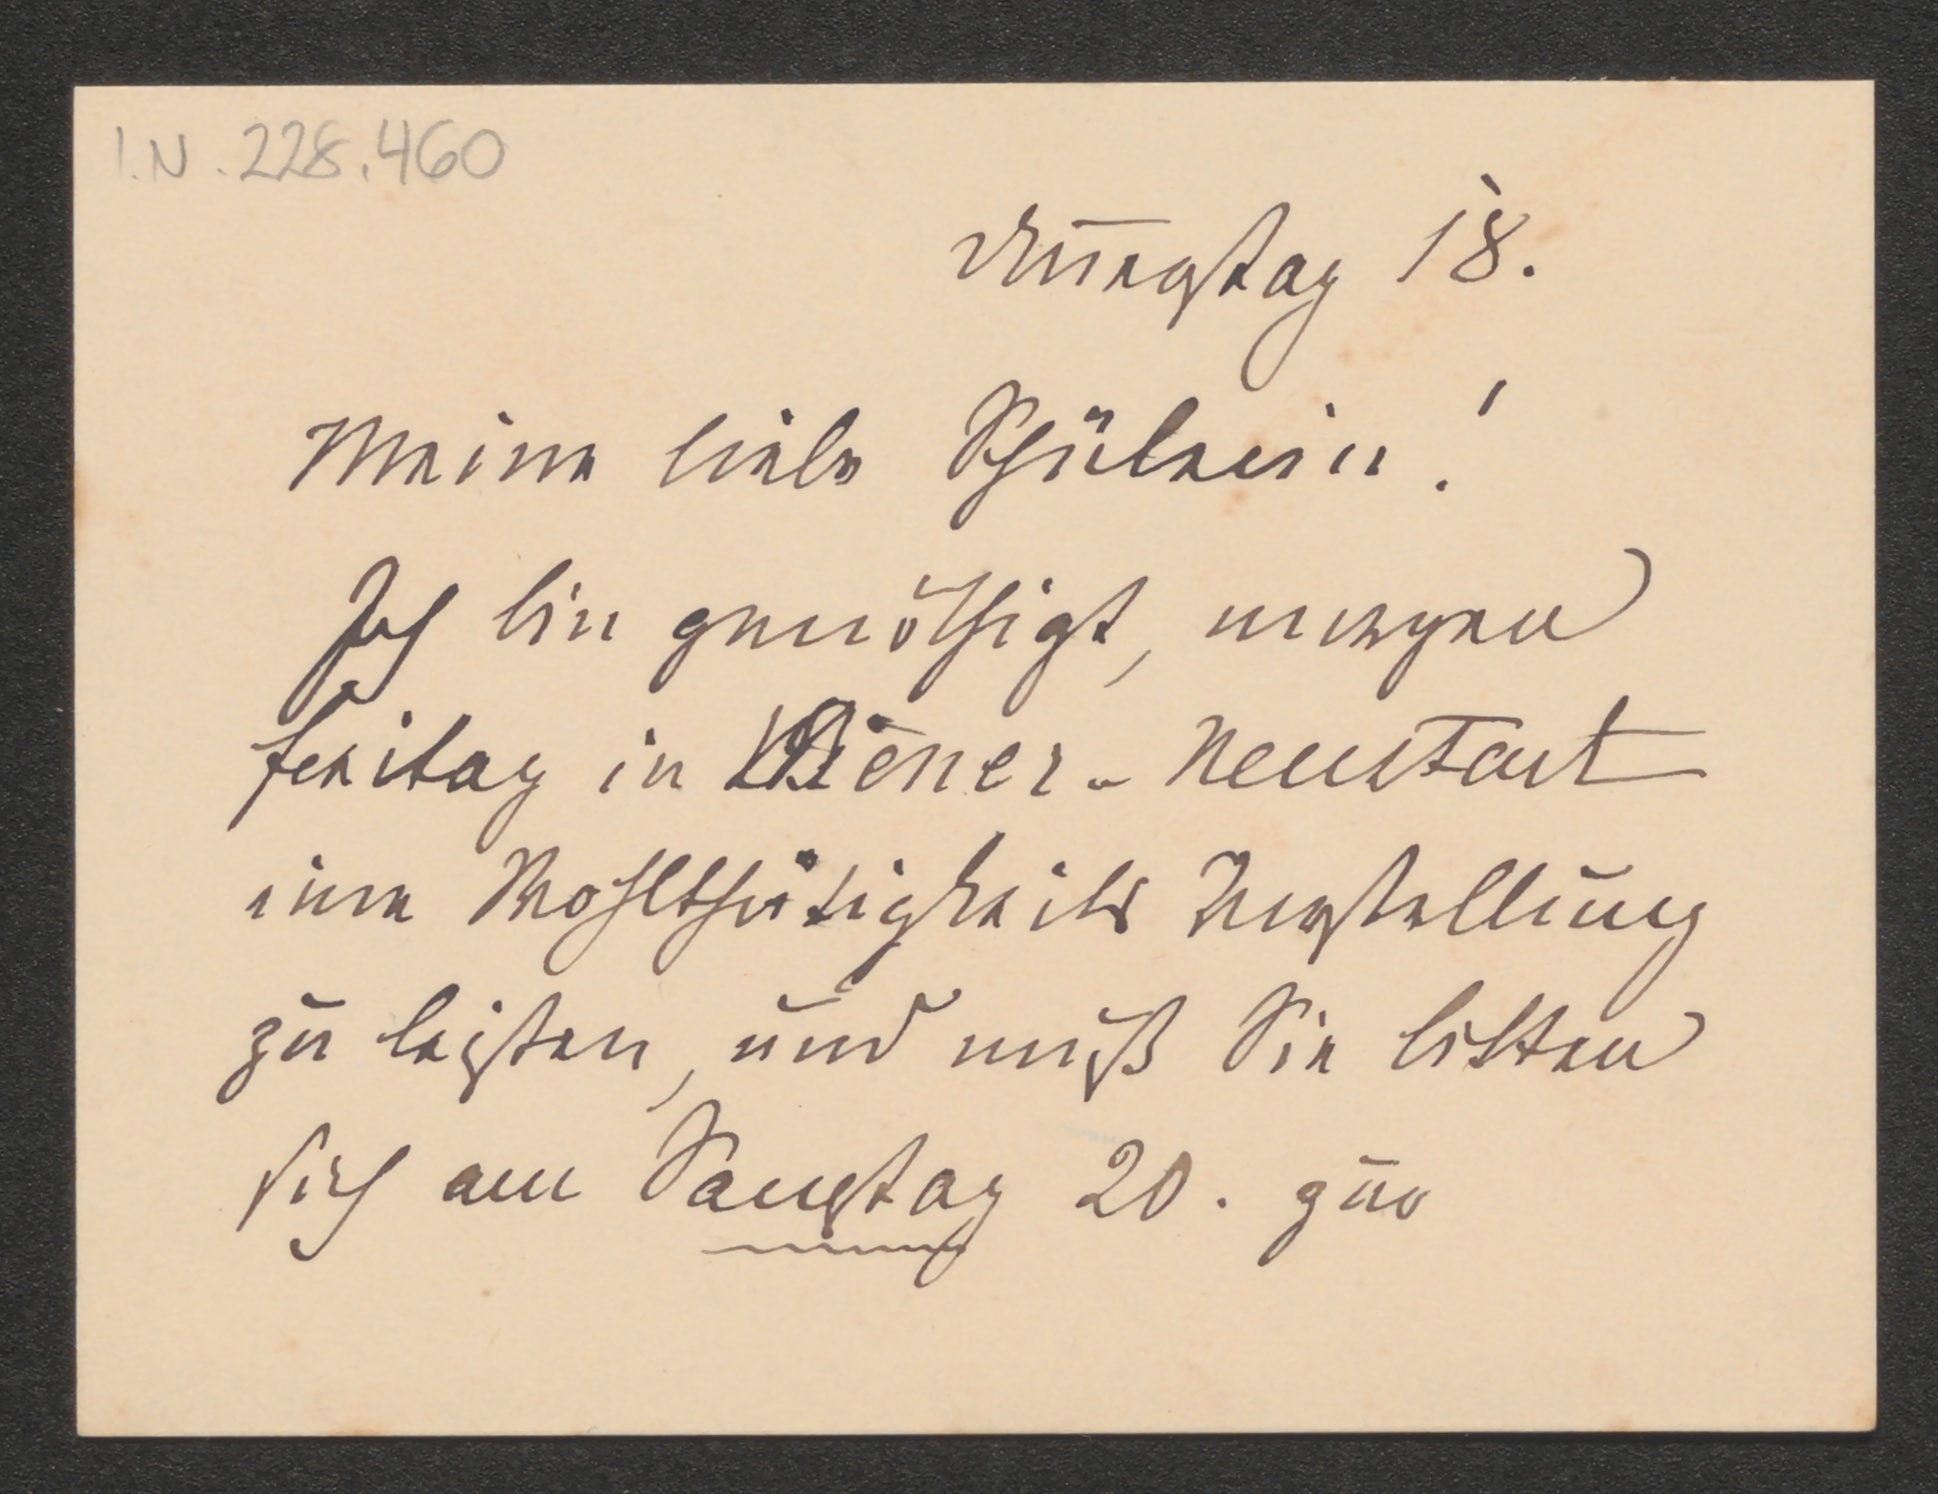 I.N. 228.460
Donnerstag 18.
Meine liebe Schülerin!
Ich bin genöthigt, morgen
Freitag in Wiener-Neustadt
eine Wohlthätigkeits Vorstellung
zu leisten, und muß Sie bitten
sich am Samstag 20. zur